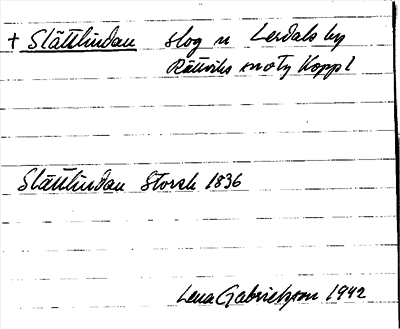 + Slättlindan skog n Lerdals by
Rättviks mot Kopp l
Slättlindan Storsk 1836
Lena Gabrielsson 1942